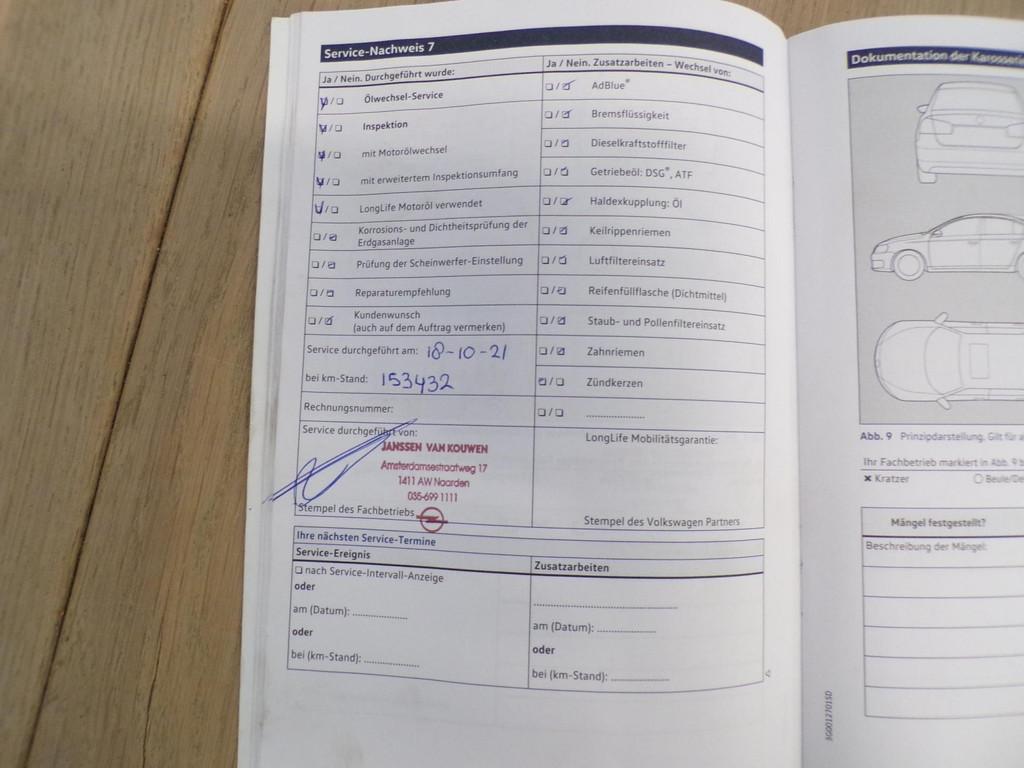 Service-Nachweis 7
Ja / Nein. Durchgeführt wurde:
Ölwechsel-Service
Inspektion
mit Motorölwechsel
mit erweitertem Inspektionsumfang
LongLife Motoröl verwendet
Korrosions- und Dichtheitsprüfung der
Erdgasanlage
Prüfung der Scheinwerfer-Einstellung
Reparaturempfehlung
Kundenwunsch
(auch auf dem Auftrag vermerken)
Service durchgeführt am: 18-10-21
bei km-Stand: 153432
Rechnungsnummer:
Service durchgeführt von:
JANSSEN VAN KOUWEN
Amsterdamsestraatweg 17
1411 AW Naarden
035-699 1111
Stempel des Fachbetriebs
Ja / Nein. Zusatzarbeiten – Wechsel von:
AdBlue®
Bremsflüssigkeit
Dieselkraftstofffilter
Getriebeöl: DSG®, ATF
Haldexkupplung: Öl
Keilrippenriemen
Luftfiltereinsatz
Reifenfüllflasche (Dichtmittel)
Staub- und Pollenfiltereinsatz
Zahnriemen
Zündkerzen
LongLife Mobilitätsgarantie:
Stempel des Volkswagen Partners
Ihre nächsten Service-Termine
Service-Ereignis
nach Service-Intervall-Anzeige
oder
am (Datum):
oder
bei (km-Stand):
Zusatzarbeiten
am (Datum):
oder
bei (km-Stand):
Dokumentation der
Abb. 9 Prinzipdarstellung. Gilt für
Ihr Fachbetrieb markiert in Abb. 9
× Kratzer
Mängel festgestellt?
Beschreibung der Mängel:
3G0012701SD